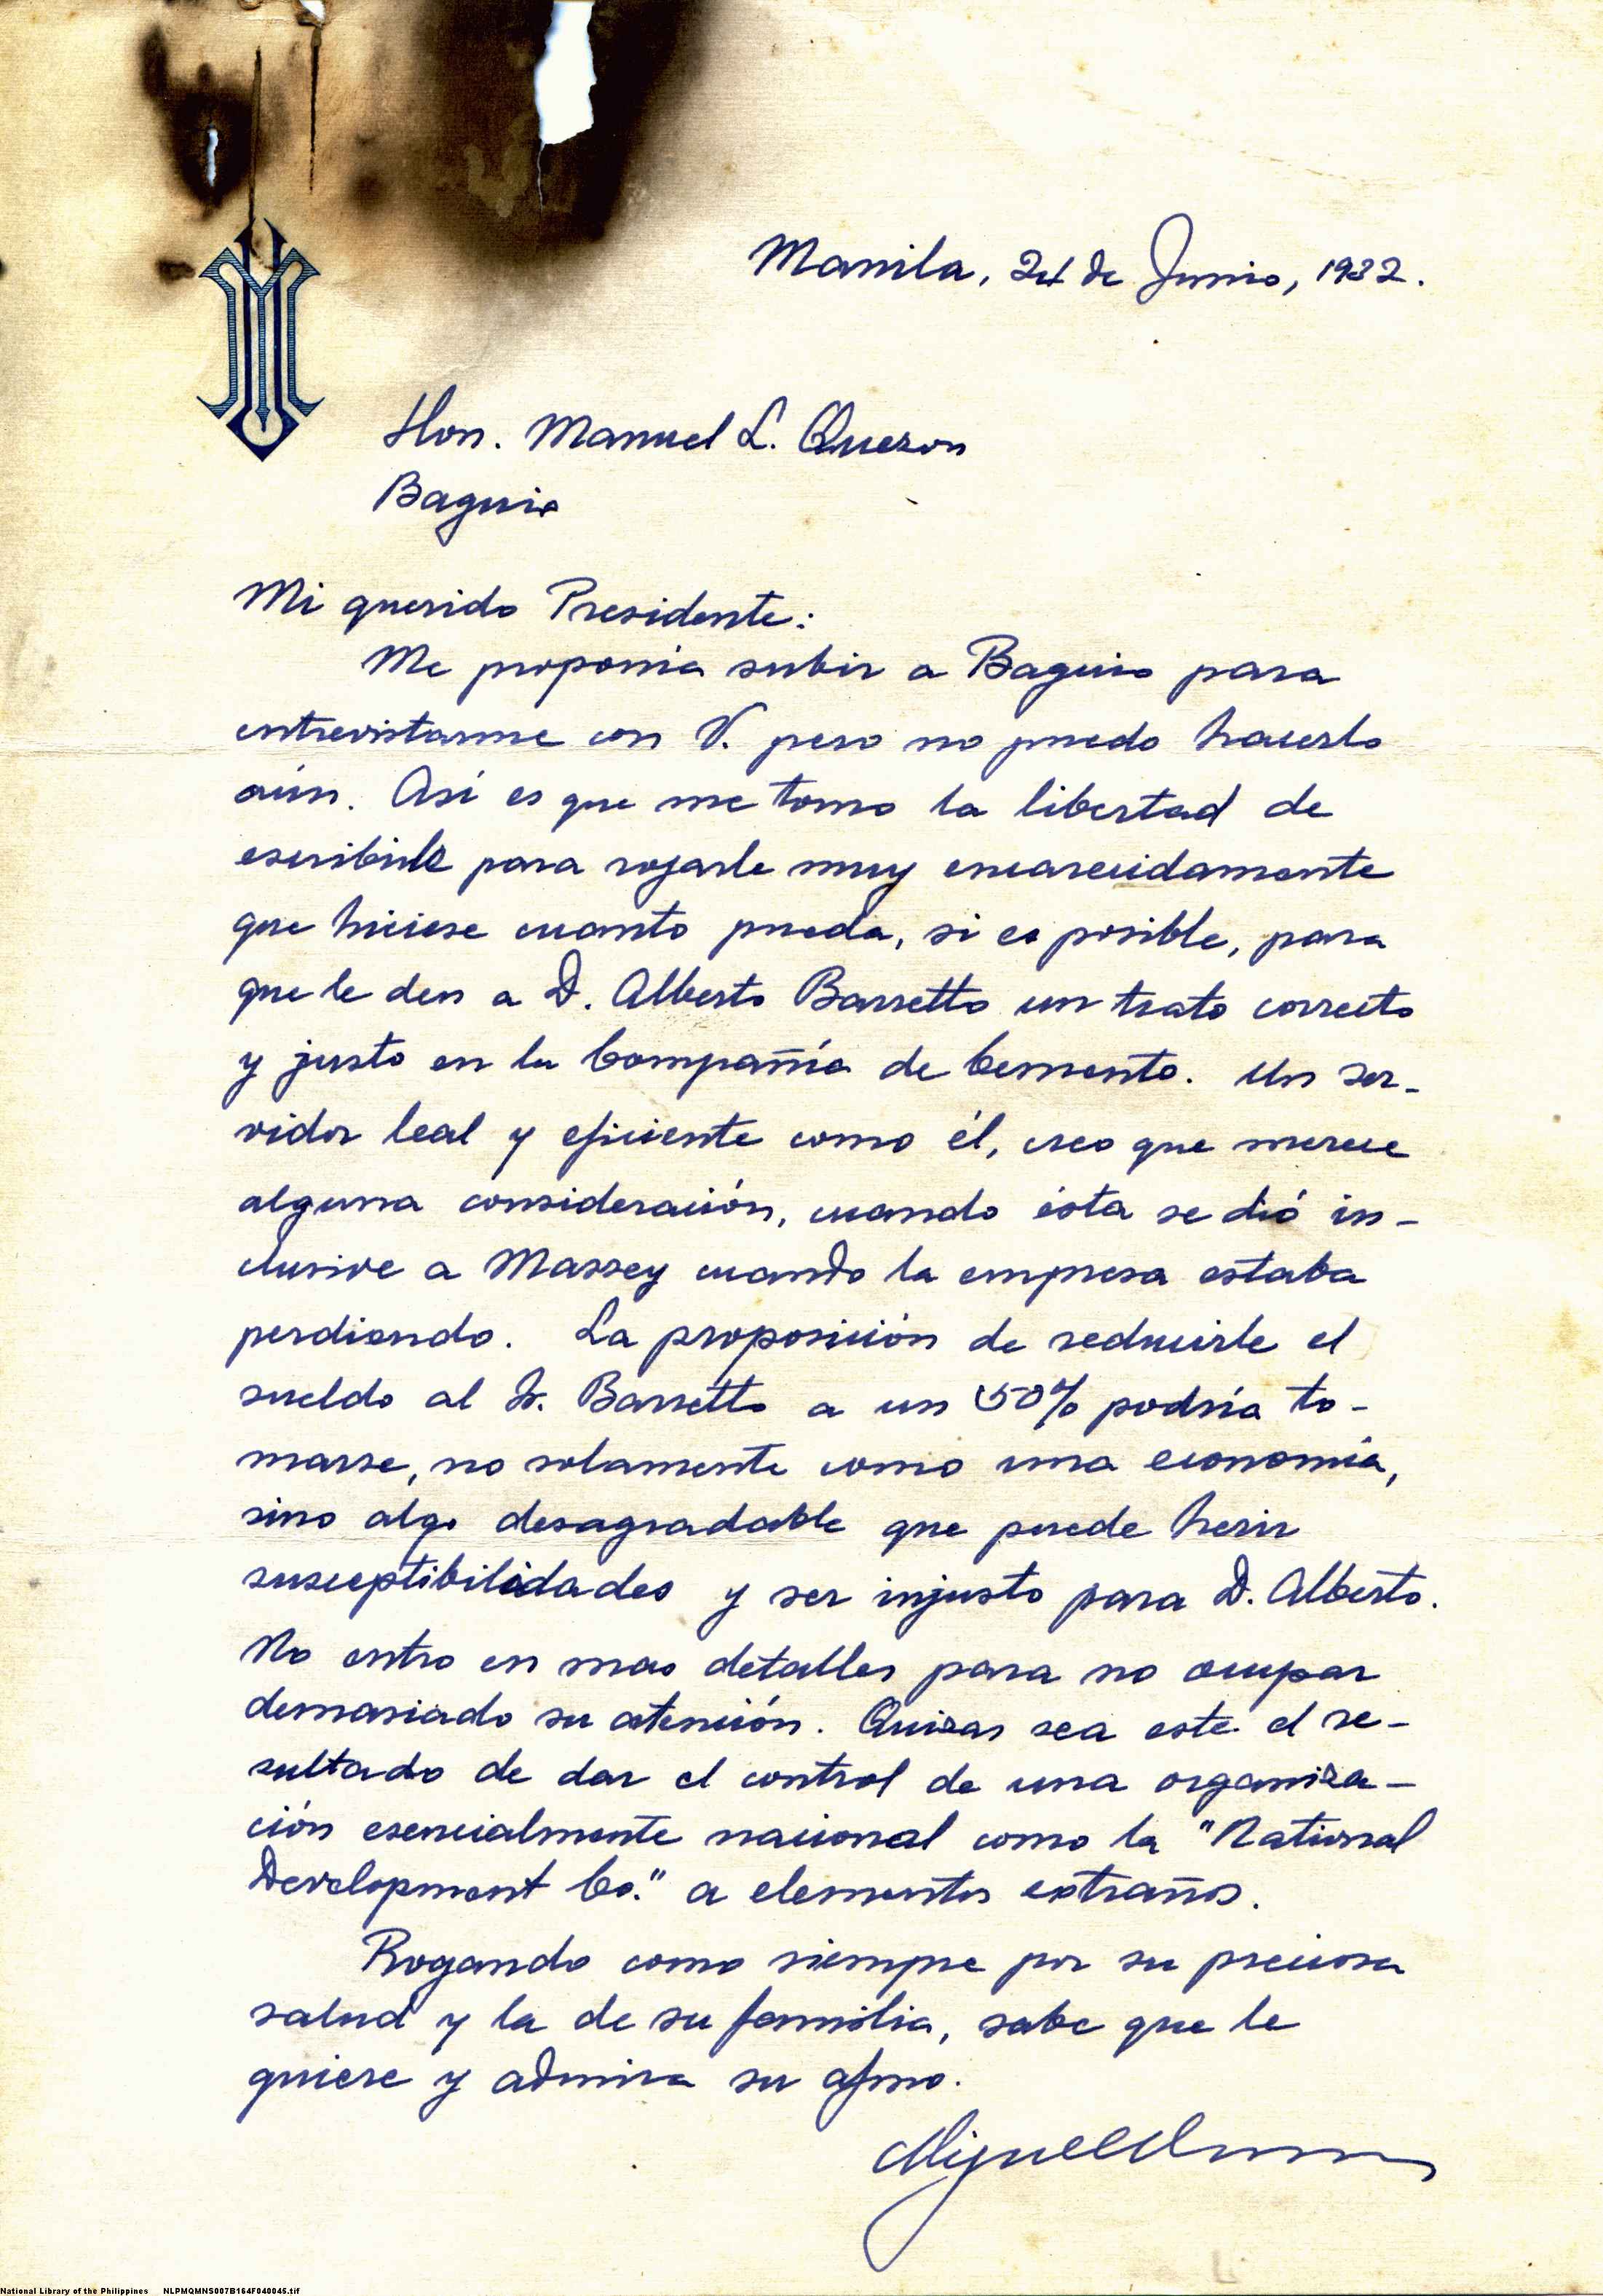 Manila, 24 de Junio, 1932.
Hon. Manuel L. Quezon
Baguio
Mi querido Presidente:
Me proponia subir a Baguio para
entrevistarme con V. pero no puedo hacerlo
aún. Así es que me tomo la libertad de
escribirle para rogarle muy encarecidamente
que hiciese cuanto pueda, si es posible, para
que le den a D. Alberto Barretto un trato correcto
y justo en la Compañía de Cemento. Un ser-
vidor leal y eficiente como él, creo que merece
alguna consideración, cuando ésta se dió in-
clusive a Massey cuando la empresa estaba
perdiendo. La proposición de reducirle el
sueldo al Sr. Barretto a un 50% podría to-
marse, no solamente como una economía,
sino algo desagradable que puede herir
susceptibilidades y ser injusto para D. Alberto.
No entro en mas detalles para no ocupar
demasiado su atención. Quizas sea este el re-
sultado de dar el control de una organiza-
ción esencialmente nacional como la "National
Development Co." a elementos extraños.
Rogando como siempre por su preciosa
salud y la de su familia, sabe que le
quiere y admira su afmo.
Miguel
National Library of the Philippines NLPMQMNS007B164F040045.tif